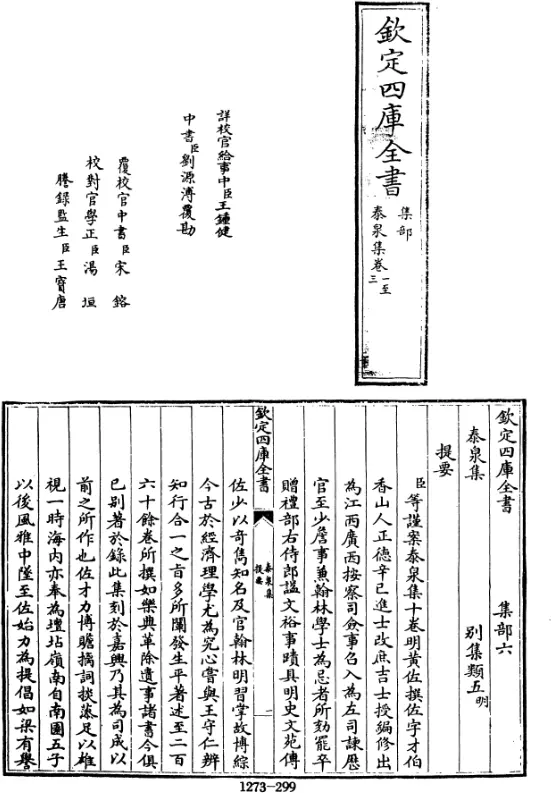 欽定四庫全書
集部
泰泉集卷一至三
詳校官給事中臣王鍾健
中書臣劉源溥覆勘
覆校官中書臣宋鎔
校對官學正臣湯垣
謄錄監生臣王寶唐
欽定四庫全書 集部六
泰泉集 別集類五明
提要
臣等謹案泰泉集十卷明黃佐撰佐字才伯
香山人正德辛巳進士改庶吉士授編修出
為江西廣西按察司僉事召入為左司諫歷
官至少詹事兼翰林學士為忌者所劾罷卒
贈禮部右侍郎諡文裕事蹟具明史文苑傳
欽定四庫全書
泰泉集
提要
一
佐少以奇雋知名及官翰林明習掌故博綜
今古於經濟理學尤為究心嘗與王守仁辨
知行合一之旨多所闡發生平著述至二百
六十餘卷所撰如樂典革除遺事諸書今俱
已別著於錄此集刻於嘉興乃其為司成以
前之所作也佐才力博贍摛詞掞藻足以雄
視一時海內亦奉為壇坫嶺南自南園五子
以後風雅中墜至佐始力為提倡如梁有譽
1273-299